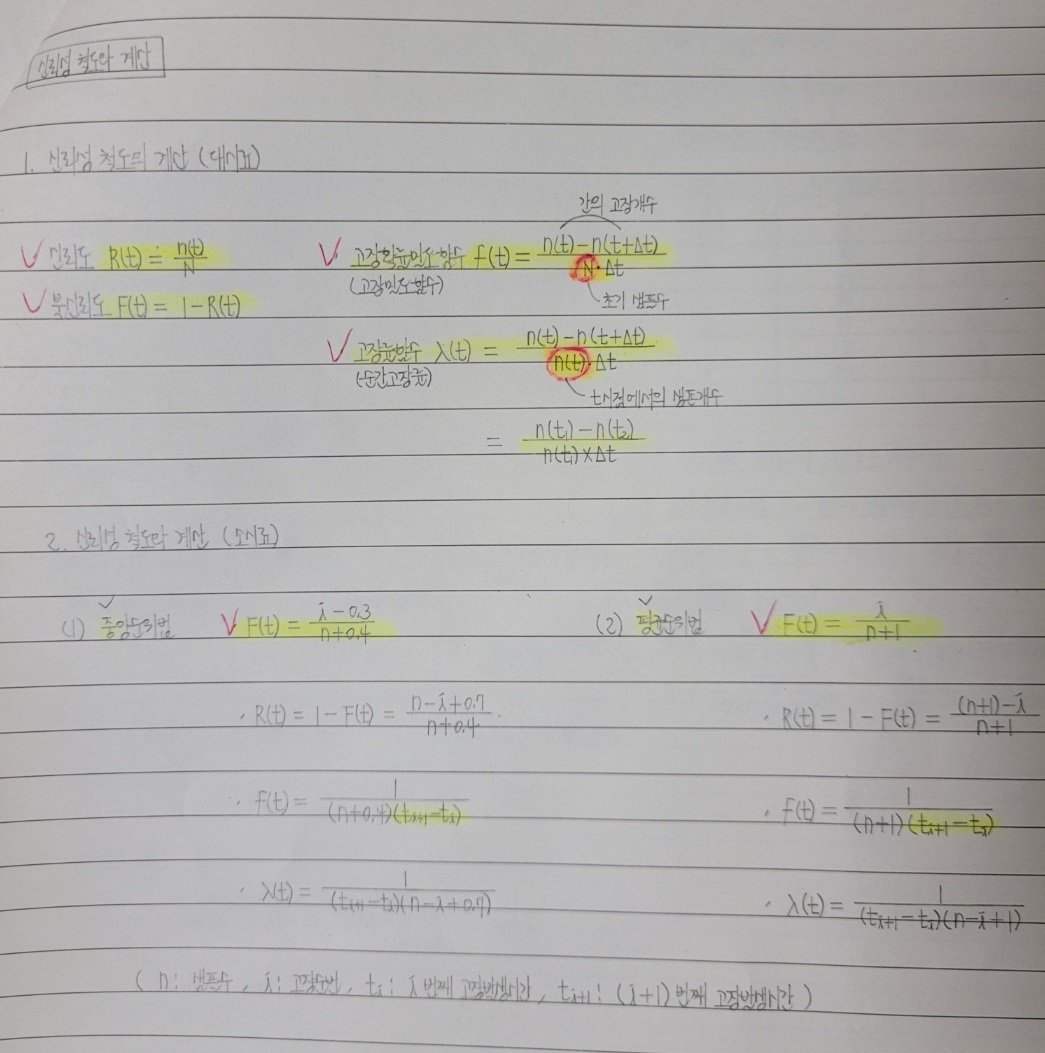 신뢰성 척도와 계산
1. 신뢰성 척도의 계산 (대시료)
간의 고장개수
✓ 신뢰도 R(t) = n(t)/N
✓ 고장확률밀도함수 f(t) = n(t)-n(t+Δt) / N·Δt
(고장밀도함수)
초기 샘플수
✓ 불신뢰도 F(t) = 1-R(t)
✓ 고장률함수 λ(t) = n(t)-n(t+Δt) / n(t)·Δt
(순간고장률)
t시점에서의 샘플개수
= n(t₁)-n(t₂) / n(t₁)×Δt
2. 신뢰성 척도와 계산 (소시료)
(1) 중앙순위법 ✓ F(t) = i-0.3 / n+0.4
(2) 평균순위법 ✓ F(t) = i / n+1
· R(t) = 1-F(t) = n-i+0.7 / n+0.4
· R(t) = 1-F(t) = (n+1)-i / n+1
· f(t) = 1 / (n+0.4)(tᵢ₊₁-tᵢ)
· f(t) = 1 / (n+1)(tᵢ₊₁-tᵢ)
· λ(t) = 1 / (tᵢ₊₁-tᵢ)(n-i+0.7)
· λ(t) = 1 / (tᵢ₊₁-tᵢ)(n-i+1)
( n: 샘플수, i: 고장순번, tᵢ: i번째 고장발생시간, tᵢ₊₁: (i+1)번째 고장발생시간 )